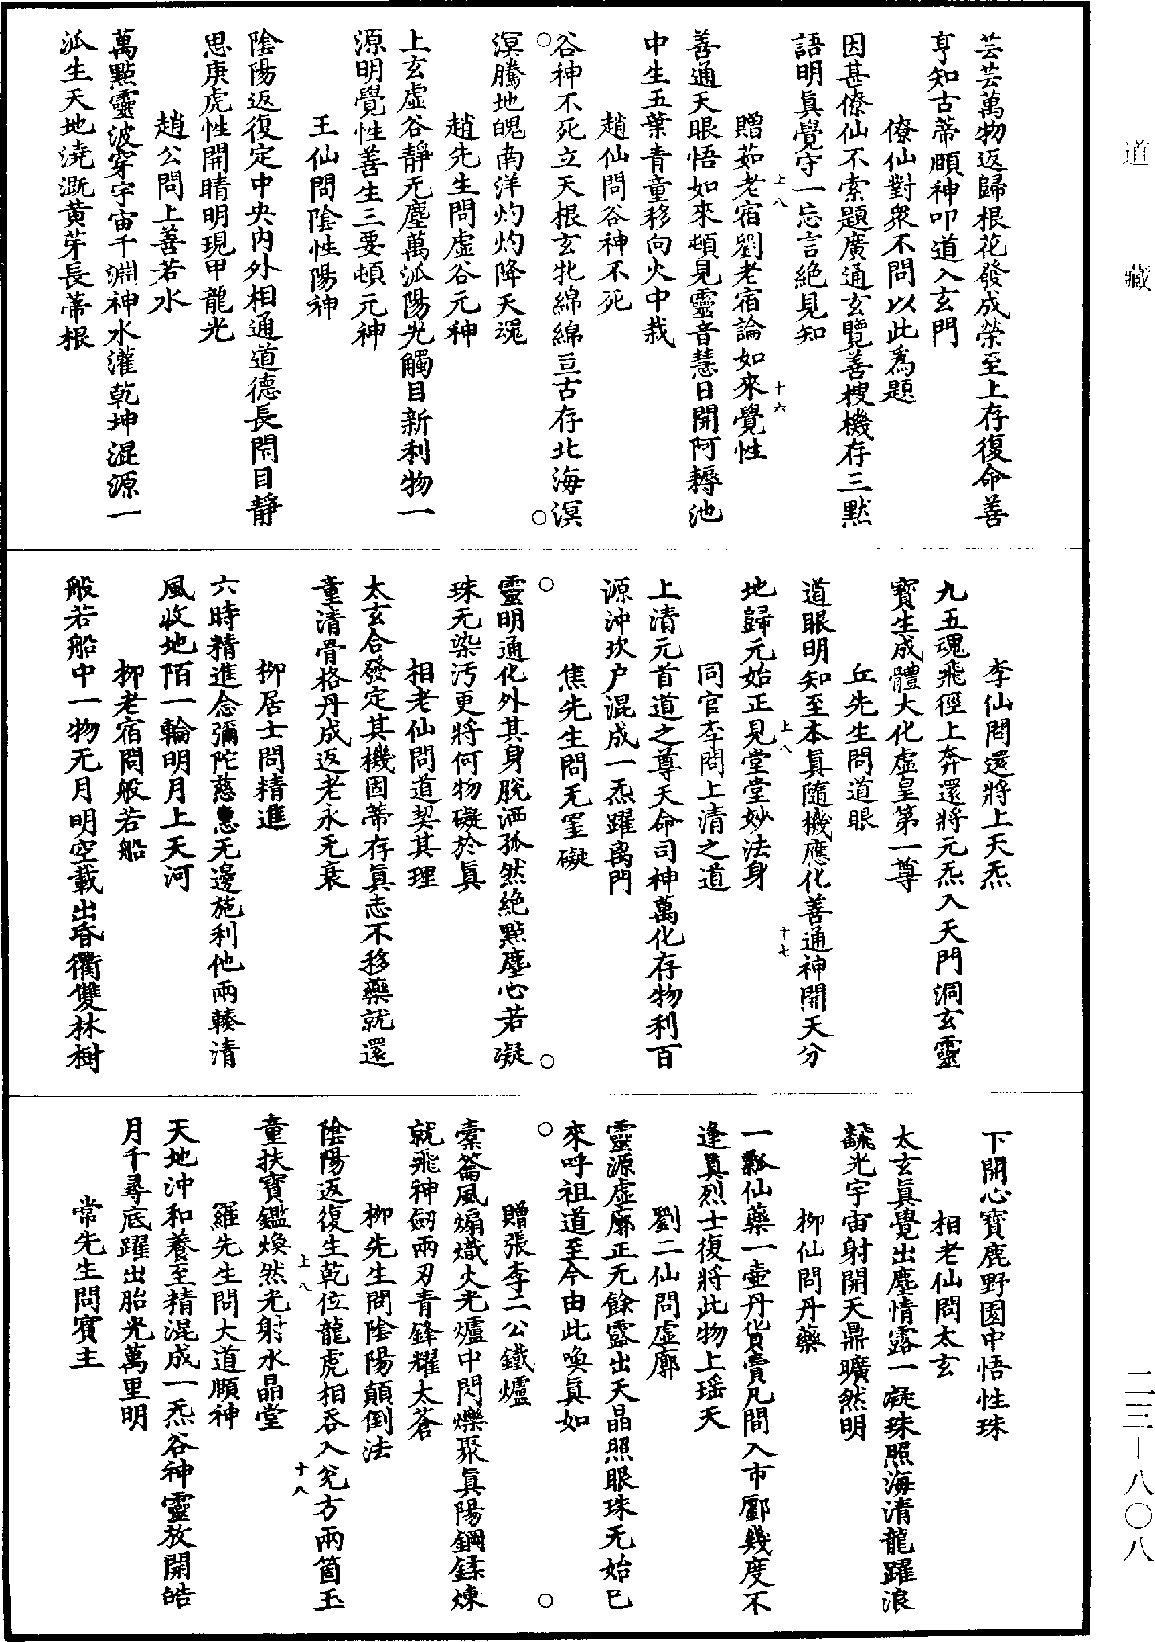 道藏
芸芸萬物返歸根花發成榮至上存復命善
亨知古蒂頤神叩道入玄門
僚仙對衆不問以此爲題
因甚僚仙不索題廣通玄覽善搜機存三默
語明眞覺守一忘言絶見知
上八
十六
贈茹老宿劉老宿論如來覺性
善通天眼悟如來頓見靈音慧日開阿耨池
中生五葉青童移向火中栽
趙仙問谷神不死
谷神不死立天根玄牝綿綿亘古存北海溟
溟騰地魄南洋灼灼降天魂
趙先生問虛谷元神
上玄虛谷靜无塵萬派陽光觸目新利物一
源明覺性善生三要頓元神
王仙問陰性陽神
陰陽返復定中央内外相通道德長閉目靜
思庚虎性開睛明現甲龍光
趙公問上善若水
萬點靈波穿宇宙千淵神水灌乾坤混源一
派生天地澆溉黄芽長蒂根
李仙問還將上天炁
九五魂飛徑上奔還將元炁入天門洞玄靈
寶生成體大化虛皇第一尊
丘先生問道眼
道眼明知至本眞隨機應化善通神開天分
上八
十七
地歸元始正見堂堂妙法身
同官李問上清之道
上清元首道之尊天命司神萬化存物利百
源沖坎户混成一炁躍离門
焦先生問无罣礙
靈明通化外其身脱洒孤然絶點塵心若凝
珠无染汚更將何物礙於眞
相老仙問道契其理
太玄合發定其機固蒂存眞志不移藥就還
童清骨格丹成返老永无衰
柳居士問精進
六時精進念彌陀慈惠无邊施利他兩轅清
風收地陌一輪明月上天河
柳老宿問般若船
般若船中一物无月明空載出昏衢雙林樹
下開心寶鹿野園中悟性珠
相老仙問太玄
太玄眞覺出塵情露一凝珠照海清龍躍浪
飜光宇宙射開天鼎曠然明
柳仙問丹藥
一瓢仙藥一壺丹貨賣凡間入市鄽幾度不
逢眞烈士復將此物上瑶天
劉二仙問虛廓
靈源虛廓正无餘露出天晶照眼珠无始已
來呼祖道至今由此喚眞如
贈張李二公鐵爐
橐籥風煽熾火光爐中閃爍聚眞陽鋼鍒煉
就飛神劒兩刃青鋒耀太蒼
柳先生問陰陽顛倒法
陰陽返復生乾位龍虎相吞入兊方兩箇玉
上八
十八
童扶寶鑑煥然光射水晶堂
羅先生問大道順神
天地沖和養至精混成一炁谷神靈放開皓
月千尋底躍出胎光萬里明
常先生問賓主
二三—八〇八